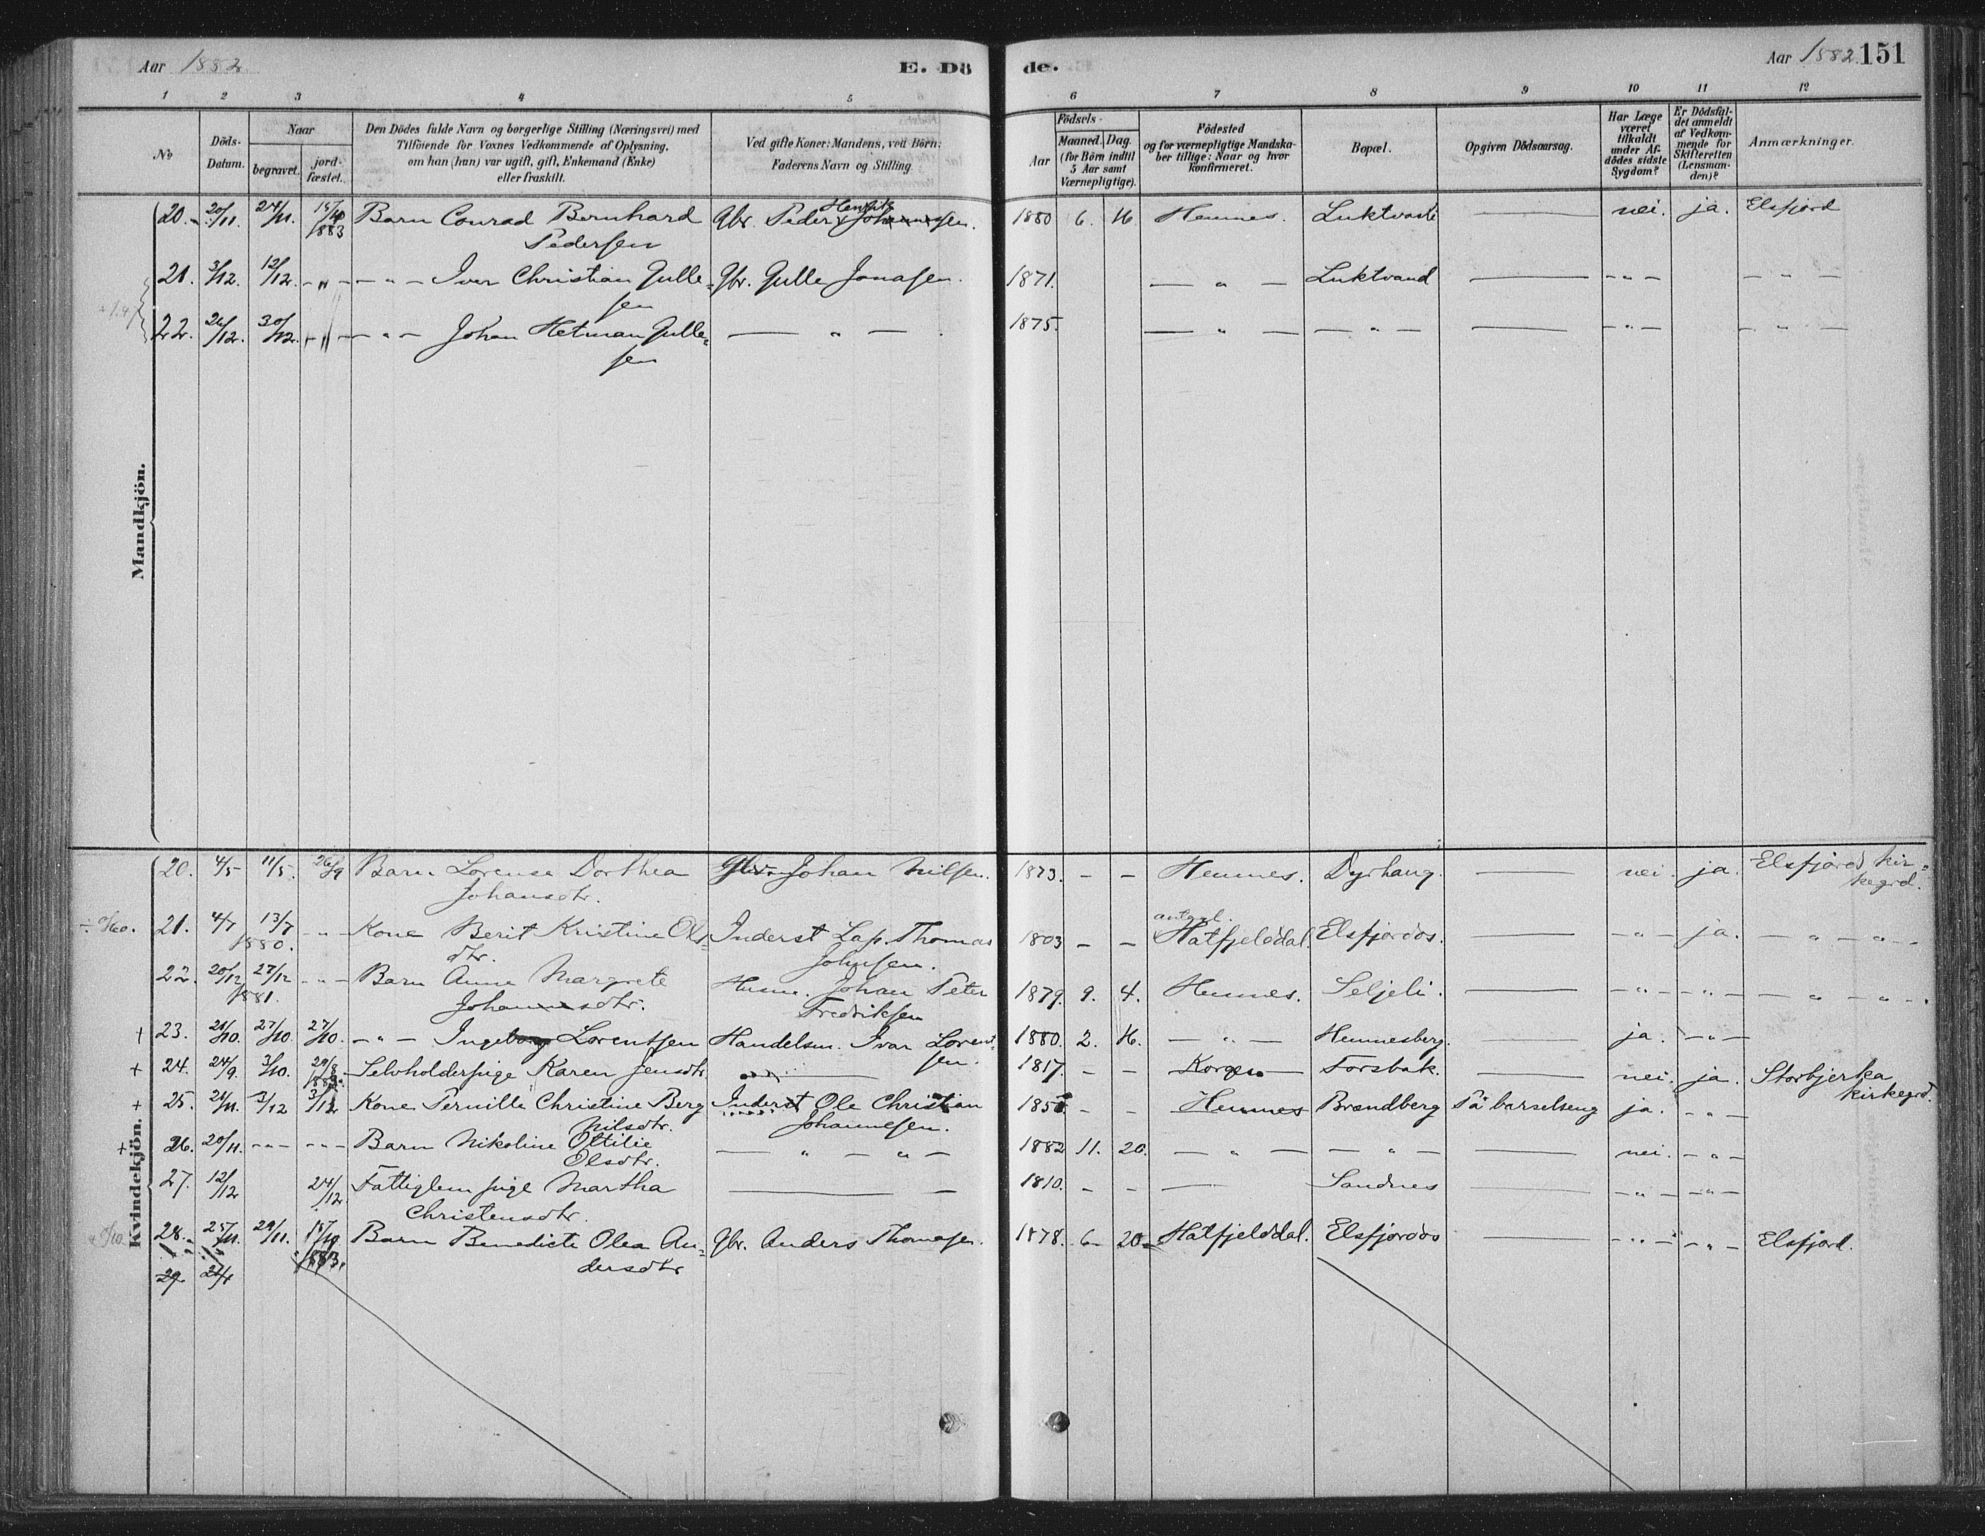 Aar 1882 E. Dö de. Aar 1882 151
1 2 3 4 5 6 7 8 9 10 11 12
No
Döds-Datum.
Naar
begravet.
jord-fæstet.
Den Dödes fulde Navn og borgerlige Stilling (Næringsvei) med
Tilföiende for Voxnes Vedkommende af Oplysning,
om han (hun) var ugift, gift, Enkemand (Enke)
eller fraskilt.
Ved gifte Koner: Mandens, ved Börn:
Faderens Navn og Stilling.
Födsels-
Aar
Maaned. Dag.
(for Börn indtil
5 Aar samt
Værnepligtige).
Födested
og for værnepligtige Mandska-
ber tillige: Naar og hvor
konfirmeret.
Bopæl.
Opgiven Dödsaarsag.
Har Læge
været
tilkaldt
under Af-
dödes sidste
Sygdom?
Er Dödsfal-
det anmeldt
af Vedkom-
mende for
Skifteretten
(Lensman-
den)?
Anmærkninger.
Mandkjön.
20. 20/11. 24/11. 15/4 1883 Barn Conrad Bernhard Gbr. Peder Johannesen. 1880 6. 16 Hemnes. Luktvand nei. ja. Elsfjord
Pedersen
21. 3/12. 12/12. – " – – " – Iver Christian Gulle- Gbr. Gulle Jonasen. 1871. — " — Luktvand — – " – – " –
sen
22. 26/12. 30/12. – " – – " – Johan Hetman Gulle- — " — 1875. — " — — " — — – " – – " –
sen
Kvindekjön.
20. 4/5 11/5. 26/9 Barn Lorense Dorthea Johan Nilsen. 1873. – – Hemnes. Dyrhaug. — nei. ja. Elsfjord kir-
Johansdtr. kegrd.
21. 4/7 13/7 – " – Kone Berit Kristine Ols- Inderst Lap. Thomas 1803 – – Hatfjelddal. Elsfjordos. — – " – ja. — " — " —
1880. dtr. Johnsen.
22. 20/12 27/12 – " – Barn Anne Margrete Husm. Johan Peter 1879. 9. 4. Hemnes. Seljeli. — – " – – " – — " — " —
1881. Johannesdtr. Fredriksen
+ 23. 21/10. 27/10. 27/10. – " – Ingeborg Lorentsen Handelsm. Ivar Lorent- 1880. 2. 16. – " – Hemnesberg. — ja. – " –
sen.
+ 24. 24/9. 3/10. Selvholderpige Karen Jensdtr. — 1817. – – Korgen Forsbak. — nei. ja. Storbjerka
kirkegrd.
+ 25. 21/11. 3/12 3/12 Kone Pernille Christine Berg Inderst Ole Christian – – Hemnes Brændberg På barselseng ja. – " –
Nilsdtr. Johannesen.
+ 26. 20/11. – " – – " – Barn Nikoline Ottilie — " — " — 1882 11. 20. — " — — " — — nei. – " –
Olsdtr.
27. 12/12 24/12. Fattiglem pige Martha — 1810. – – — Sandnes — – " – – " –
Christensdtr.
28. 25/11. 29/11. 1883. Barn Benedicte Olea An- Gbr. Anders Thomasen. 1878. 6 20 Hatfjelddal. Elsfjordos — – " – – " – Elsfjord.
dersdtr
29.